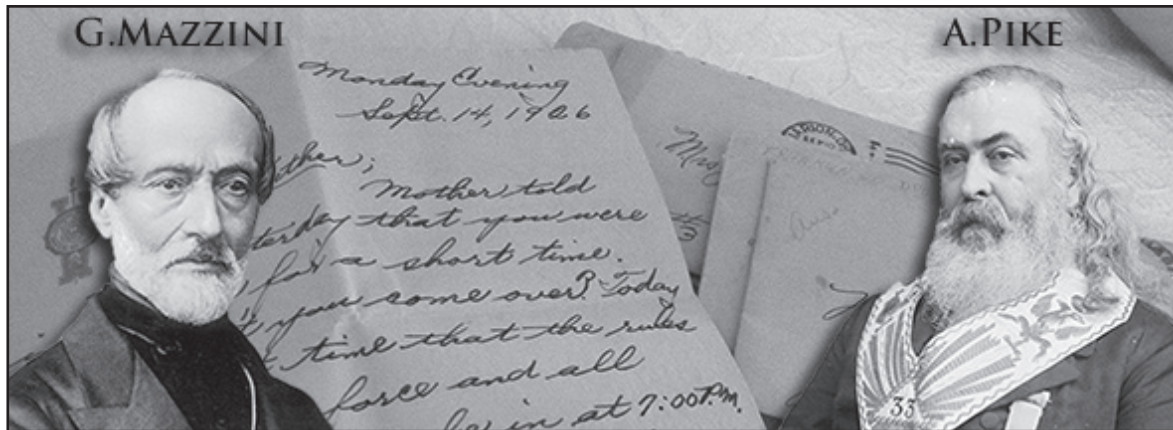 G.MAZZINI
A.PIKE
Monday Evening
Sept. 14, 1926
ther;
Mother told
terday that you were
, for a short time.
t you come over? Today
t time that the rules
force and all
be in at 7:00 P.M.
Mrs
33